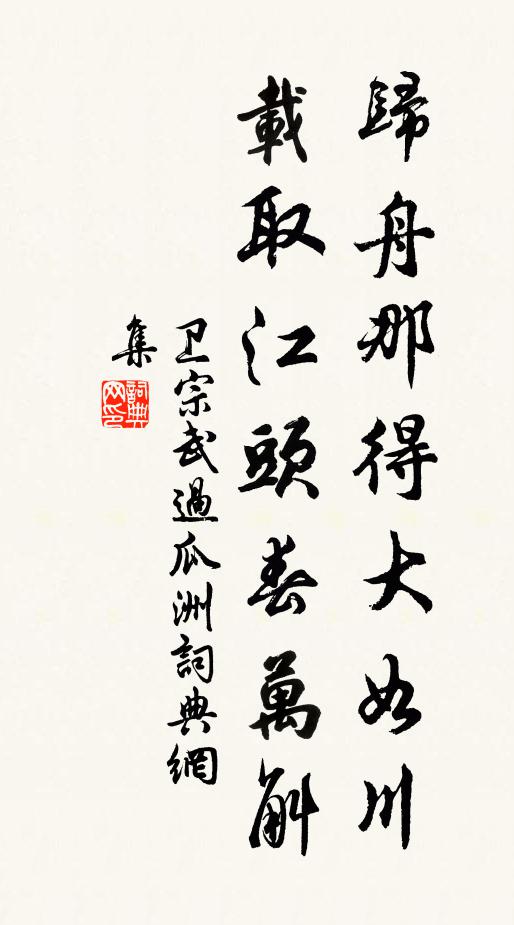 歸舟那得大如川
載取江頭春萬斛
卫宗武過瓜洲詞典網
集
詞典网印